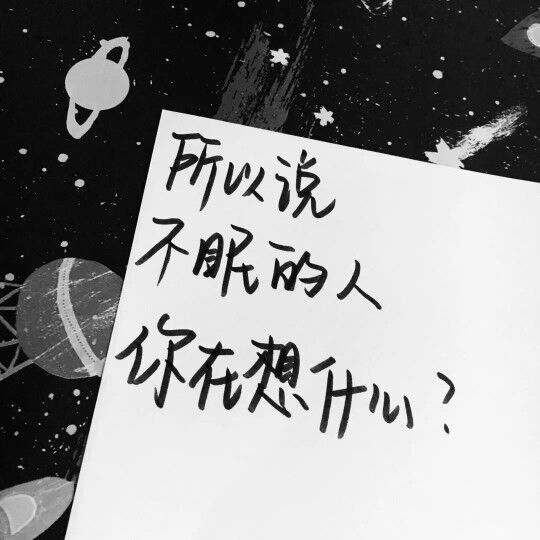 所以说
不眠的人
你在想什么？